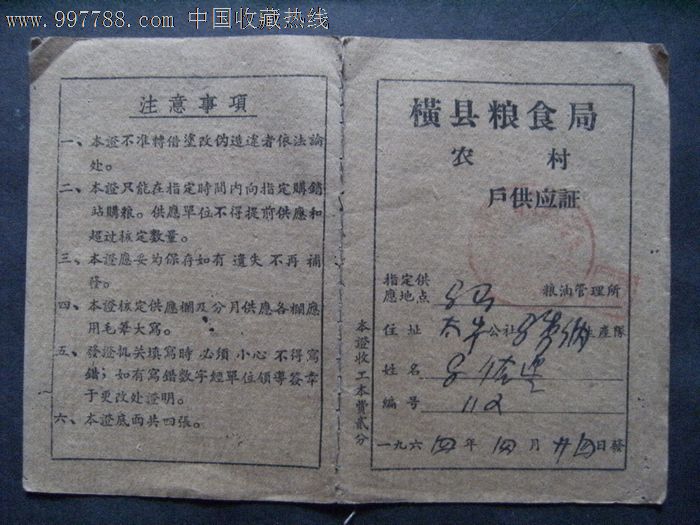 www.997788.com 中国收藏热线
注意事項
一、本證不准轉借塗改伪造違者依法論
处。
二、本證只能在指定時間内向指定購銷
站購粮。供應單位不得提前供應和
超过核定数量。
三、本證應妥均保存如有遺失不再補
發。
四、本證核定供應欄及分月供應各欄應
用毛筆大寫。
五、發證机关填寫時必须小心不得寫
錯；如有寫錯数字經單位領導簽章
于更改处證明。
六、本證底面共四張。
本證收工本費貳分
橫县粮食局
农村
戶供应証
指定供
應地点 粮油管理所
住址 公社 生產隊
姓名
編号 112
一九六四年 月 日發